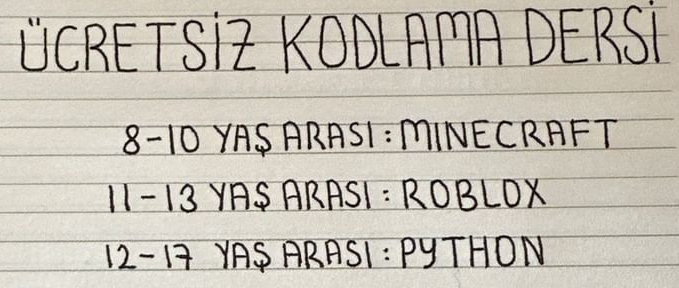 ÜCRETSİZ KODLAMA DERSİ
8-10 YAŞ ARASI : MINECRAFT
11-13 YAŞ ARASI : ROBLOX
12-17 YAŞ ARASI : PYTHON